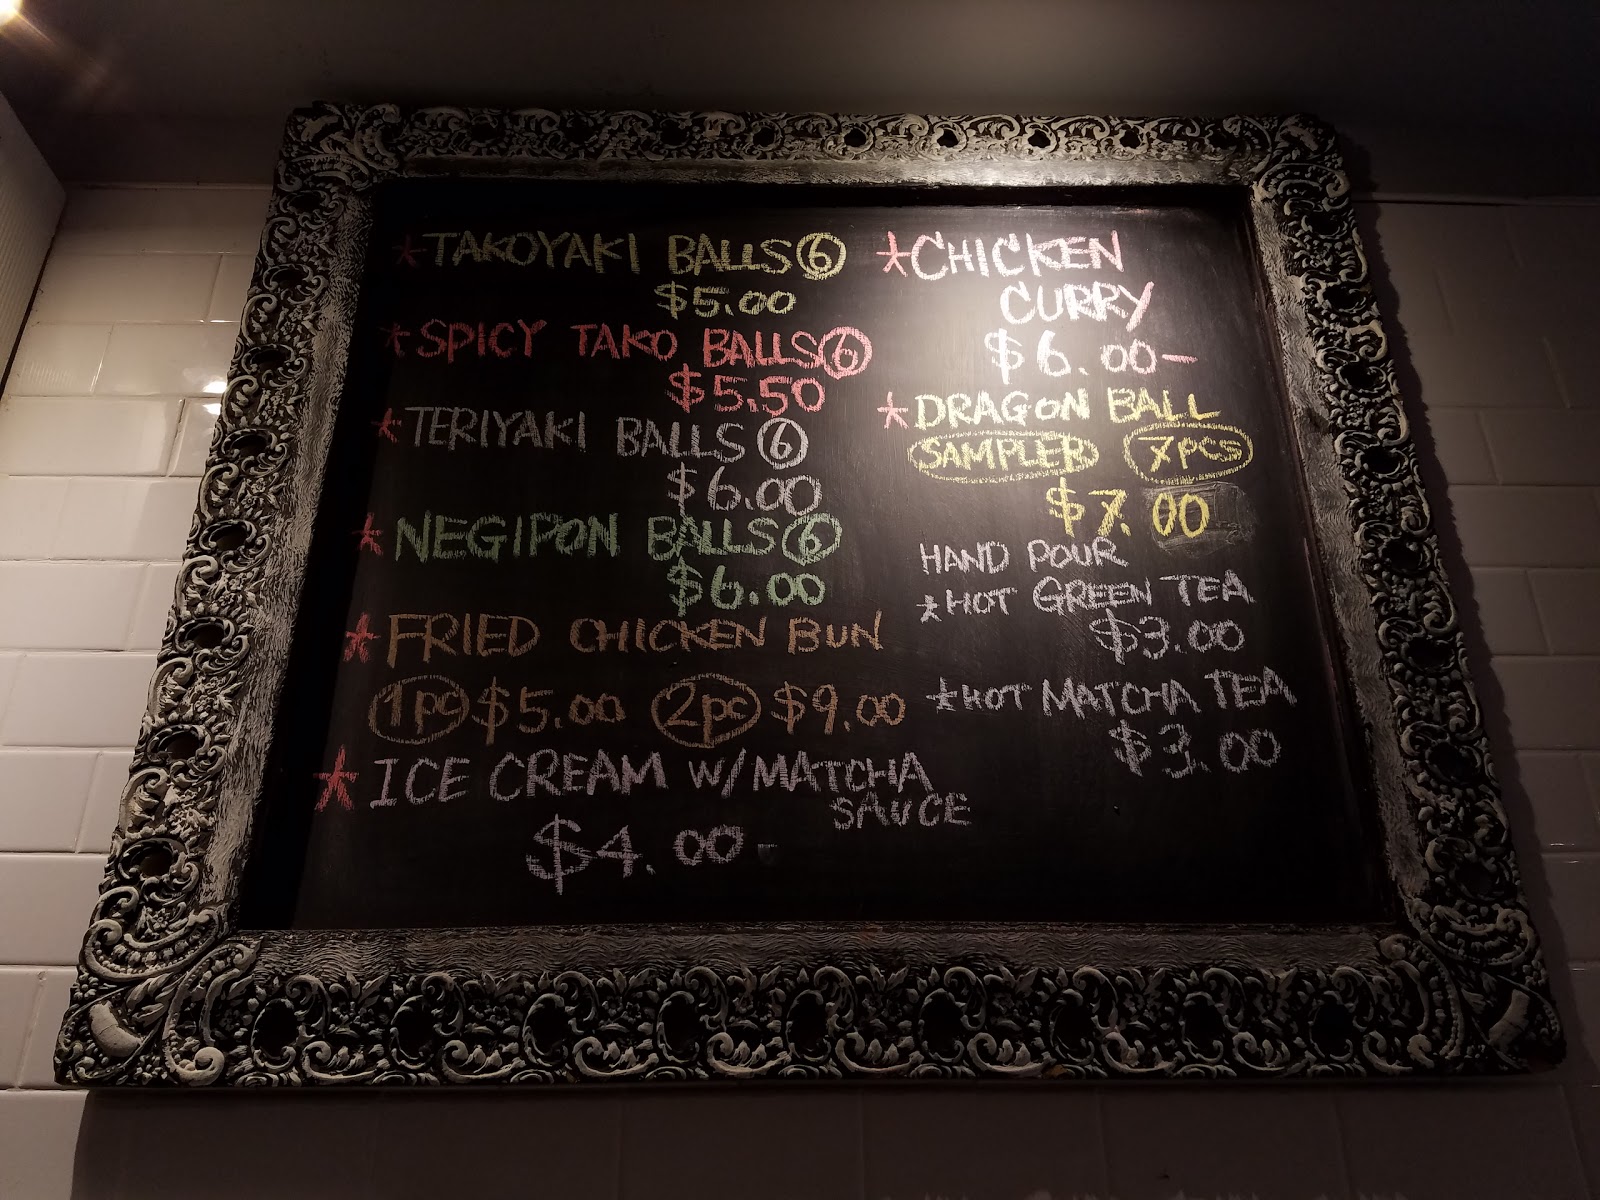 *TAKOYAKI BALLS 6
$5.00
*SPICY TAKO BALLS 6
$5.50
*TERIYAKI BALLS 6
$6.00
*NEGIPON BALLS 6
$6.00
*FRIED CHICKEN BUN
1pc $5.00 2pc $9.00
*ICE CREAM W/MATCHA
SAUCE
$4.00-
*CHICKEN
CURRY
$6.00-
*DRAGON BALL
SAMPLER 7pcs
$7.00
HAND POUR
*HOT GREEN TEA
$3.00
*HOT MATCHA TEA
$3.00